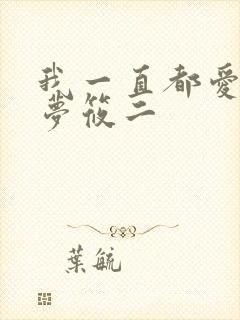 我一直都愛
夢筱二
葉毓